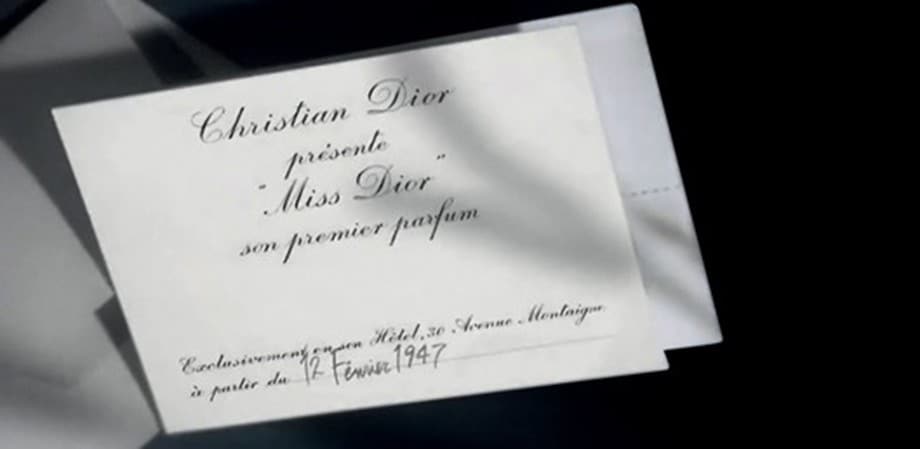 Christian Dior
présente
"Miss Dior"
son premier parfum
Exclusivement en son Hôtel, 30 Avenue Montaigne
à partir du 12 Février 1947